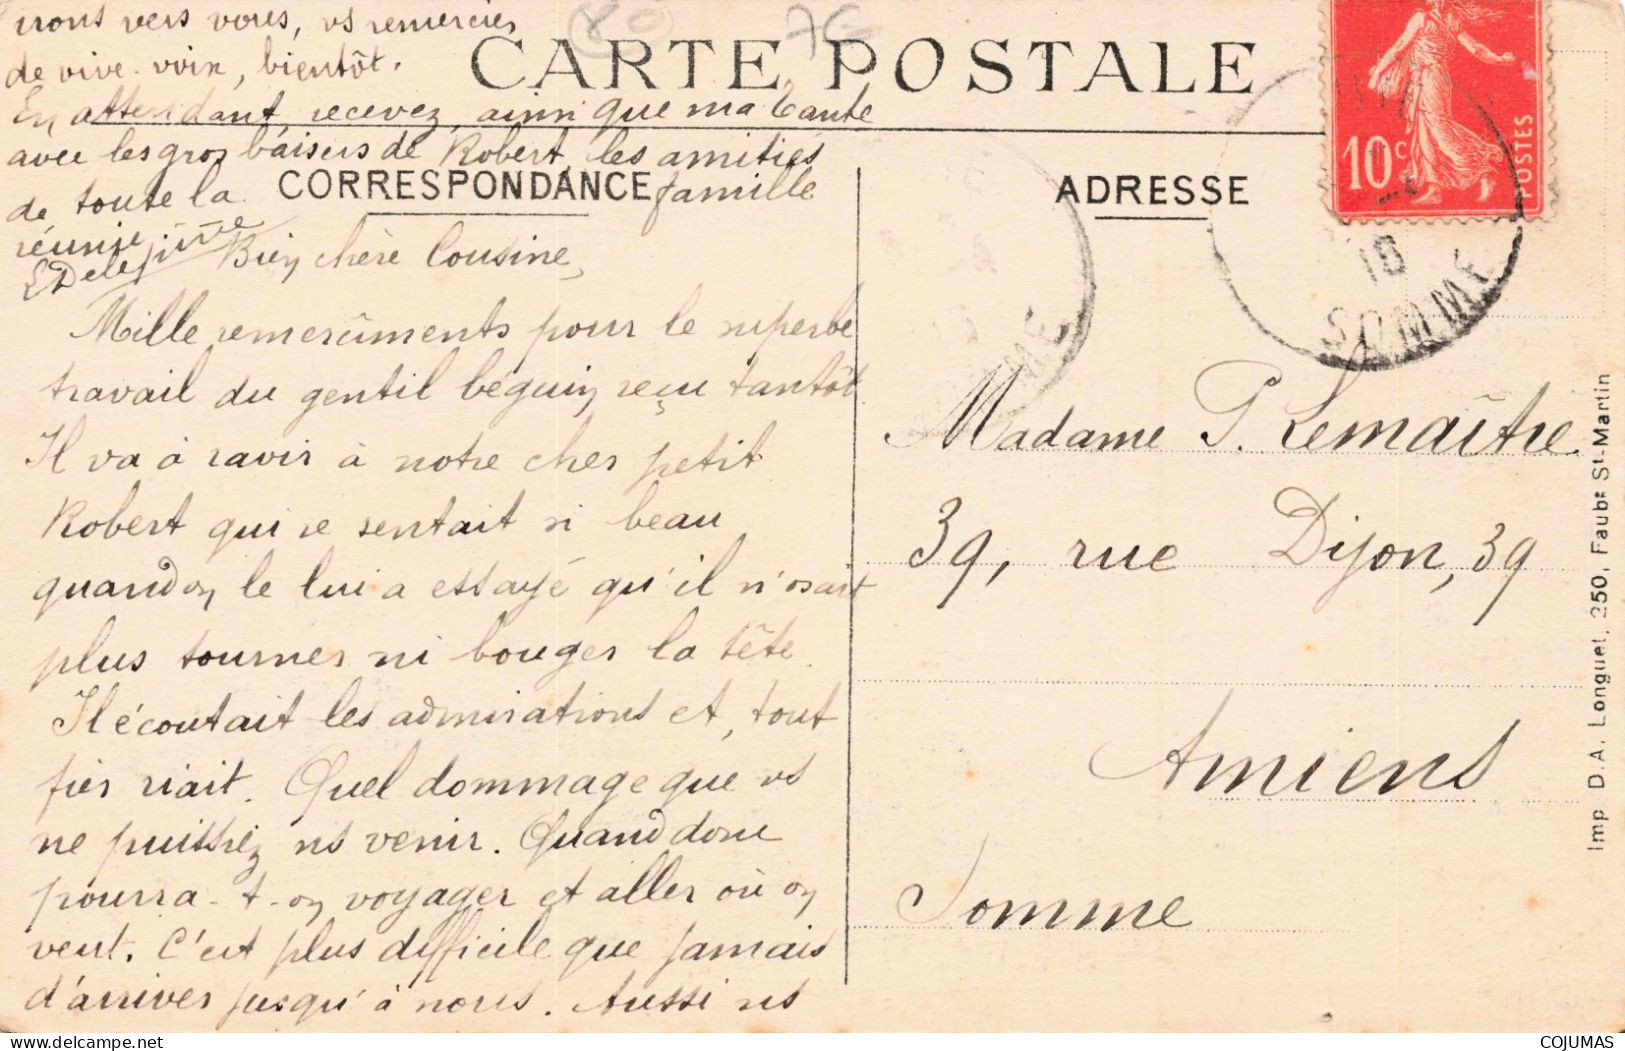 irons vers vous, vs remercier
de vive voix, bientôt.
CARTE POSTALE
En attendant, recevez, ainsi que ma tante
avec les gros baisers de Robert, les amitiés
de toute la famille
réunie
CORRESPONDANCE
ADRESSE
10c
POSTES
18
SOMME
Bien chère Cousine,
Mille remerciments pour le superbe
travail du gentil béguin reçu tantôt
Il va à ravir à notre cher petit
Robert qui se sentait si beau
quand on le lui a essayé qu'il n'osait
plus tourner ni bouger la tête.
Il écoutait les admirations et, tout
fier riait. Quel dommage que vs
ne puissiez ns venir. Quand donc
pourra-t-on voyager et aller où on
veut. C'est plus difficile que jamais
d'arriver jusqu'à nous. Aussi ns
Madame P. Lemaître
39, rue Dijon, 39
Amiens
Somme
Imp D.A. Longuet, 250, Faubg St-Martin
COJUMAS